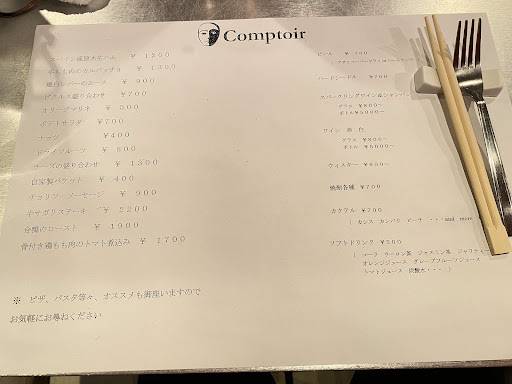 Comptoir
スペイン産 生ハム ¥ 1200
のカルパッチョ ¥ 1300
鶏白レバーのムース ¥ 900
ピクルス盛り合わせ ¥700
オリーブマリネ ¥ 500
ポテトサラダ ¥700
ナッツ ¥400
ドライフルーツ ¥ 800
チーズの盛り合わせ ¥ 1300
自家製バケット ¥ 400
チョリソーソーセージ ¥ 900
牛サガリステーキ ¥ 2200
合鴨のロースト ¥ 1900
骨付き鶏もも肉のトマト煮込み ¥ 1700
※ ピザ、パスタ等々、オススメも御座いますので
お気軽にお尋ねください
ビール ¥ 700
ハードシードル ¥700
スパークリングワイン &シャンパン
グラス ¥800~
ボトル ¥5000~
ワイン 赤 白
グラス ¥800~
ボトル ¥5000~
ウィスキー ¥650~
焼酎各種 ¥700
カクテル ¥700
( カシス カンパリ ピーチ ・・・and more
ソフトドリンク ¥500
( コーラ ウーロン茶 ジャスミン茶 ジンジャー
オレンジジュース グレープフルーツジュース
トマトジュース 炭酸水・・・ )